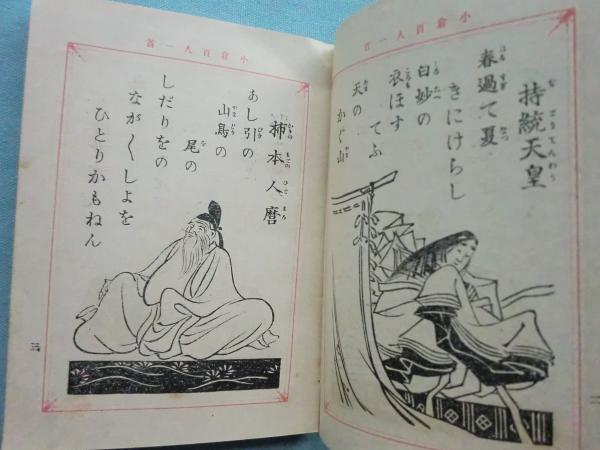 小倉百人一首
持統天皇
春過て夏
きにけらし
白妙の
衣ほす
てふ
天の
かぐ山
小倉百人一首
柿本人麿
あし引の
山鳥の
尾の
しだりをの
なが〱しよを
ひとりかもねん